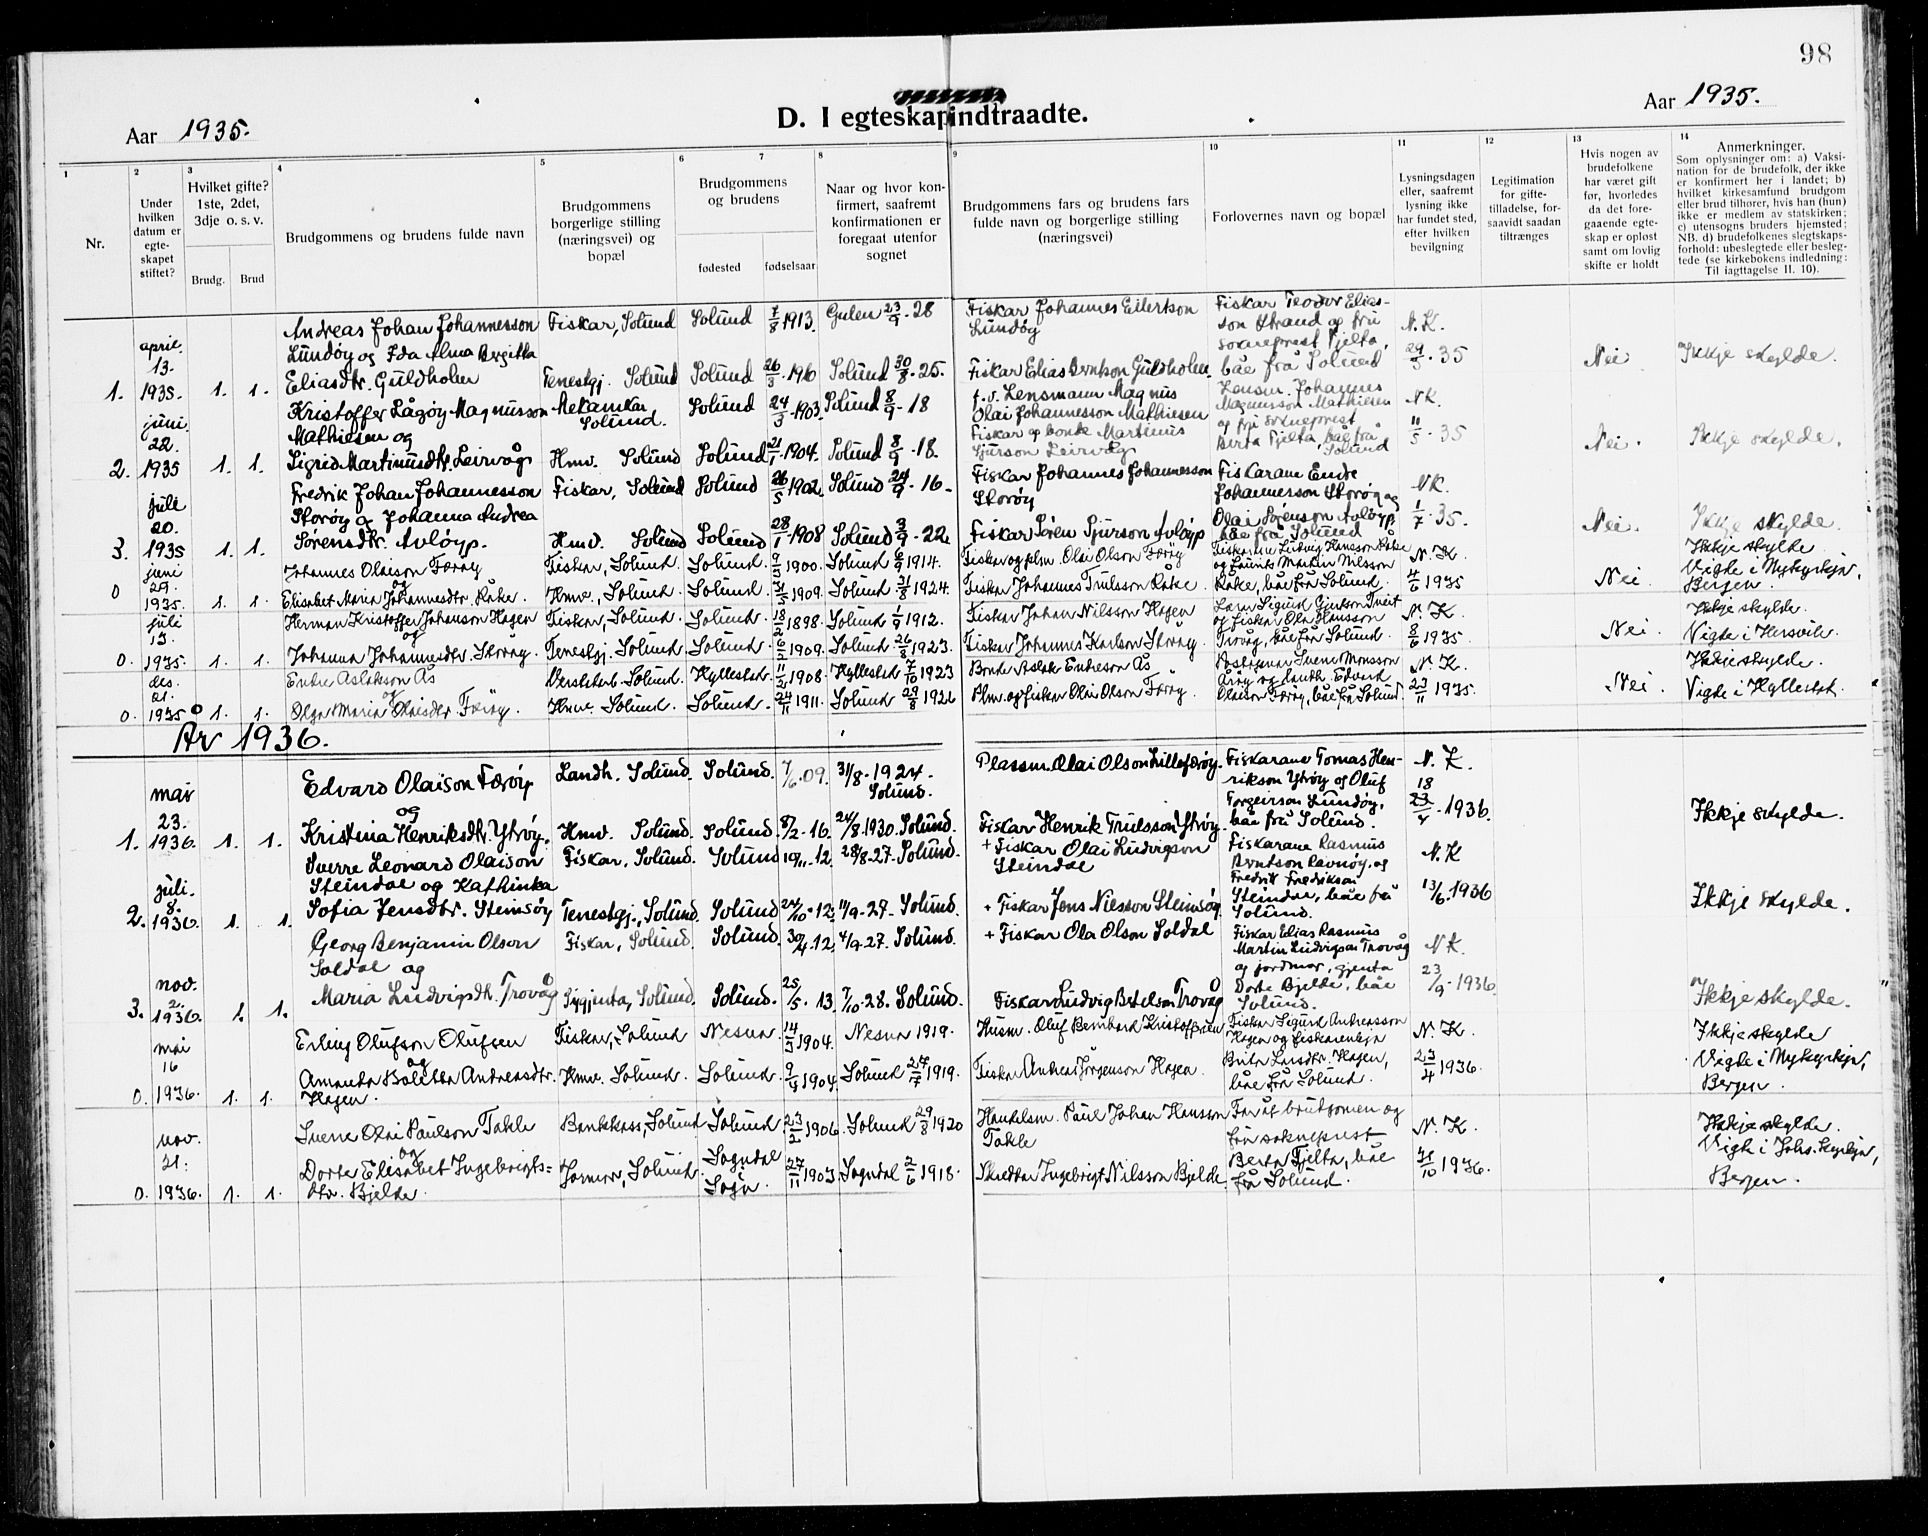 98
Aar 1935.
D. I egteskap indtraadte.
Aar 1935.
1
Nr.
2
Under hvilken datum er egte- skapet stiftet?
3
Hvilket gifte? 1ste, 2det, 3dje o. s. v.
Brudg. Brud
4
Brudgommens og brudens fulde navn
5
Brudgommens borgerlige stilling (næringsvei) og bopæl
6 7
Brudgommens og brudens
fødested fødselsaar
8
Naar og hvor kon- firmert, saafremt konfirmationen er foregaat utenfor sognet
9
Brudgommens fars og brudens fars fulde navn og borgerlige stilling (næringsvei)
10
Forlovernes navn og bopæl
11
Lysningsdagen eller, saafremt lysning ikke har fundet sted, efter hvilken bevilgning
12
Legitimation for gifte- tilladelse, for- saavidt saadan tiltrænges
13
Hvis nogen av brudefolkene har været gift før, hvorledes da det fore- gaaende egte- skap er opløst samt om lovlig skifte er holdt
14
Anmerkninger.
Som oplysninger om: a) Vaksi- nation for de brudefolk, der ikke er konfirmert her i landet; b) hvilket kirkesamfund brudgom eller brud tilhører, hvis han (hun) ikke er medlem av statskirken; c) utensogns bruders hjemsted; NB. d) brudefolkenes slegtskaps- forhold: ubeslegtede eller besleg- tede (se kirkebokens indledning: Til iagttagelse II. 10).
1. april 13. 1935. 1. 1.
Andreas Johan Johannesson Lundöy og Ida Alma Bergitta Eliasdtr. Guldholm
Fiskar, Solund Solund 7/8 1913. Gulen 23/9 - 28
Tenestgj. Solund Solund 26/3 - 1910 Solund 30/8 - 25.
Fiskar Johannes Eilertson Lundöy
Fiskar Elias Berntson Guldholm
Fiskar Teodor Elias- son Strand og fru sokneprest Fjelta, båe frå Solund
N.K. 29/3 - 35
Nei
Ikkje skylde.
2. juni 22. 1935 1. 1.
Kristoffer Lågöy Magnusson Mathiesen og Sigrid Martinusdtr. Leirvåg
Mekanikar, Solund. Solund 24/3 - 1903. Solund 8/9 - 18
Hmv. Solund Solund 21/1 - 1904. Solund 8/9 - 18.
f.v. Lensmann Magnus Olai Johannesson Mathiesen
Fiskar og bonde Martinus Sjurson Leirvåg
Lensm. Johannes Magnusson Mathiesen og fru sokneprest Berta Fjelta, båe frå Solund
N.K. 11/5 - 35
Nei.
Ikkje skylde.
3. juli 20. 1935 1. 1.
Fredrik Johan Johannesson Storöy og Johanna Andrea Sörensdtr. Avlöyp.
Fiskar, Solund Solund 26/5 1902. Solund 24/9 - 16 -
Hmv. Solund Solund 28/1 - 1908 Solund 3/9 - 22
Fiskar Johannes Johannesson Storöy
Fiskar Sören Sjurson Avlöyp
Fiskarane Endre Johannesson Storöy og Olai Sörenson Avlöyp, båe frå Solund
N.K. 1/7 - 35.
Nei.
Ikkje skylde.
0 juni 29. 1935. 1. 1.
Johannes Olaison Færöy og Elisabet Maria Johannesdtr. Råke.
Fiskar, Solund. Solund. 9/3 1900. Solund 6/9 1914.
Hmv., Solund. Solund. 1909. Solund 31/8 1924.
Fiskar og plm. Olai Olson Færöy
Fiskar Johannes Trulsson Råke.
Fiskarane Ludvig Hansson Råke og Martin Nilsson Råke, båe frå Solund.
N. K. 4/6 1935
Nei.
Ikkje skylde Vigde i Nykyrkja, Bergen.
0. juli 13. 1935. 1. 1.
Herman Kristoffer Johanson Hagen og Johanna Johannesdtr. Storöy.
Fiskar, Solund. Solund. 18/2 1898. Solund 1/9 1912.
Tenestgj. Solund. Solund. 6/2 1909. Solund 26/8 1923.
Fiskar Johan Nilsson Hagen
Fiskar Johannes Karlson Storöy.
Sigurd Tveit og fiskar Ola Hansson Trovåg, båe frå Solund.
N. K. 8/6 1935.
Nei.
Ikkje skylde. Vigde i Hersvik.
0. des. 21. 1935 1. 1.
Endre Aslakson Ås og Olga Maria Olaisdtr. Færöy.
Solund. Hyllestad 11/2 1908. Hyllestad 7/10 1923
Hmv. Solund. Solund. 24/11 1911. Solund 29/8 1926
Bonde Aslak Endreson Ås
Plm. og fiskar Olai Olson Færöy.
Svene Monsson og landh. Edvard Olaison Færöy, båe frå Solund.
N. K. 23/11 1935.
Nei.
Ikkje skylde. Vigde i Hyllestad.
År 1936.
1. mai 23. 1936. 1. 1.
Edvard Olaison Færöy og Kristina Henriksdtr. Ytröy.
Landh. Solund. Solund. 7/6 .09. 31/8 - 1924. Solund.
Hmv. Solund. Solund. 8/2 - 16. 24/8 - 1930. Solund.
Plassm. Olai Olson Lillefæröy.
Fiskar Henrik Trulsson Ytröy.
Fiskarane Tomas Hen- rikson Ytröy og Oluf Torgeirson Lundöy, båe frå Solund.
N. K. 18 23/4 - 1936.
Ikkje skylde.
2. juli. 8. 1936. 1. 1.
Sverre Leonard Olaison Steindal og Kathinka Sofia Jensdtr. Steinsöy
Fiskar, Solund. Solund 19/11 - 12. 28/8 - 27. Solund.
Tenestgj., Solund. Solund 24/10 - 12. 11/9 - 27. Solund.
+ Fiskar Olai Ludvigson Steindal
+ Fiskar Jens Nilsson Steinsöy.
Fiskarane Rasmus Berntson Ravnöy, og Fredrik Fredrikson Steindal, båe frå Solund.
N.K 13/6. 1936
Ikkje skylde.
3. nov. 2. 1936. 1. 1.
Georg Benjamin Olson Soldal og Maria Ludvigsdtr. Trovåg
Fiskar, Solund. Solund. 30/4 .12. 4/9 - 27. Solund.
Sygjenta, Solund. Solund. 25/5 - 13. 7/10 - 28. Solund.
+ Fiskar Ola Olson Soldal
Fiskar Ludvig Betelson Trovåg
Fiskar Elias Rasmus Martin Ludvigson Trovåg og jordmor, gjenta Dorte Bjelde, båe Solund.
N.K. 23/9 - 1936.
Ikkje skylde.
0. mai 16 1936. 1. 1.
Erling Olufson Olufsen og Amanda Bolette Andreasdtr. Hagen.
Fiskar, Solund Nesna 14/3 1904. Nesna 1919.
Hmv. Solund. Solund. 9/4 1904. Solund 27/7 1919.
Husm. Oluf Bernhard Kristoffersen
Fiskar Andreas Jörgenson Hagen.
Fiskar Sigurd Andreasson Hagen og fiskarenkja Brita Larsdtr. Hagen, båe frå Solund.
N. K. 23/4 1936.
Ikkje skylde Vigde i Nykyrkja, Bergen.
0. nov. 21. 1936. 1. 1.
Svene Olai Paulson Takle og Dorte Elisabet Ingebrigts= dtr. Bjelde.
Bankkass., Solund Solund 23/2 1906. Solund 29/8 1920
Jormor, Solund Sogndal Sogn. 27/11 1903. Sogndal 2/6 1918.
Handelsm. Paul Johan Hansson Takle
Skreddar Ingebrigt Nilsson Bjelde.
Far åt brudgomen og frå sokneprest Berta Fjelta, båe frå Solund.
N. K. 31/10 1936.
Ikkje skylde. Vigde i Johs. kyrkja, Bergen.